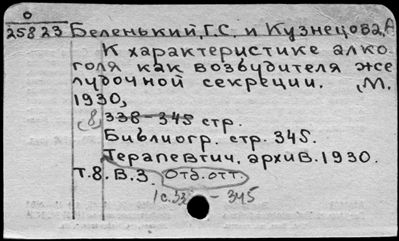 О
25823 Беленький, Г.С. и Кузнецова, А
К характеристике алко-
голя как возбудителя же
лудочной секреции. М.
1930,
(8) 338-345 стр.
Библиогр. стр. 345.
Терапевтич. архив. 1930.
т.8. В.3. Отд. отт.
345